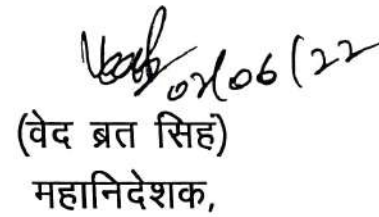 02/06/22
(वेद ब्रत सिहं)
महानिदेशक,